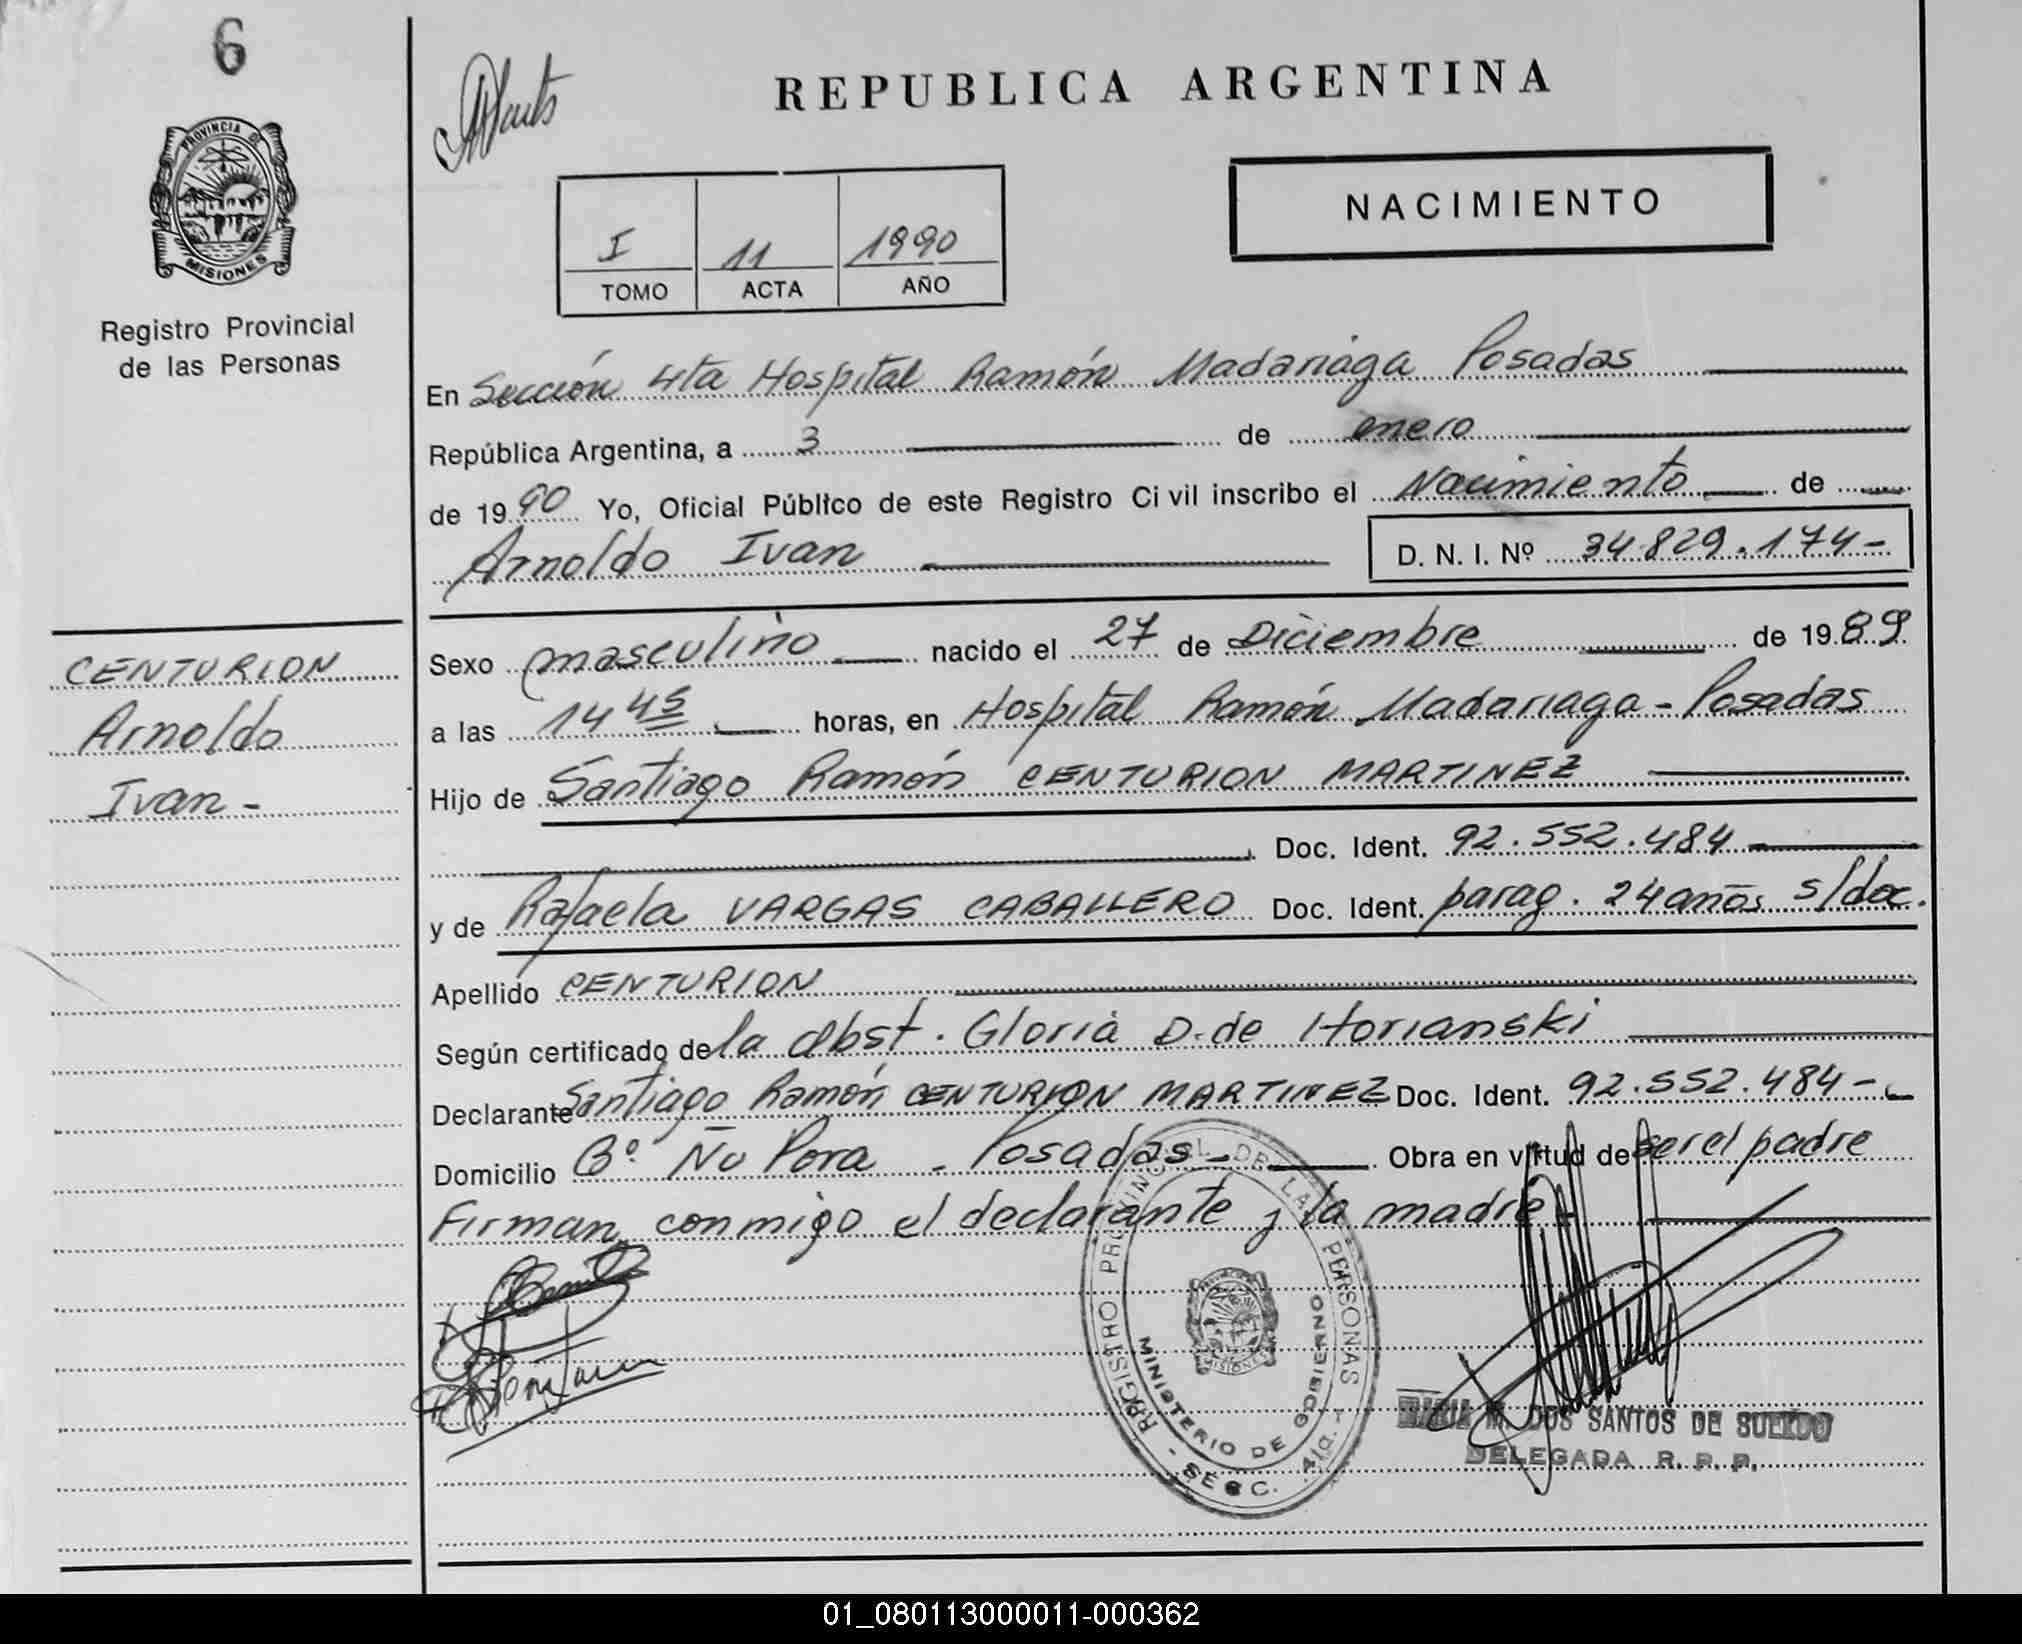 6
REPUBLICA ARGENTINA
PROVINCIA DE
MISIONES
NACIMIENTO
I 11 1990
TOMO ACTA AÑO
Registro Provincial
de las Personas
En Sección 4ta Hospital Ramón Madariaga Posadas
República Argentina, a 3 de enero
de 1990 Yo, Oficial Público de este Registro Civil inscribo el Nacimiento de
Arnoldo Ivan D. N. I. Nº 34.829.174-
CENTURION
Arnoldo
Ivan-
Sexo masculino nacido el 27 de Diciembre de 1989
a las 14 45 horas, en Hospital Ramón Madariaga - Posadas
Hijo de Santiago Ramón CENTURION MARTINEZ
Doc. Ident. 92.552.484
y de Rafaela VARGAS CABALLERO Doc. Ident. parag. 24 años s/doc.
Apellido CENTURION
Según certificado de la obst. Gloria D. de Horianski
Declarante Santiago Ramón CENTURION MARTINEZ Doc. Ident. 92.552.484-
Domicilio Bº Ñu Pora - Posadas- Obra en virtud de ser el padre
Firman conmigo el declarante y la madre-
REGISTRO PROVINCIAL DE LAS PERSONAS - SECC. 4ta. -
MINISTERIO DE GOBIERNO
MISIONES
M. DOS SANTOS DE
DELEGADA R. P. P.
01_080113000011-000362